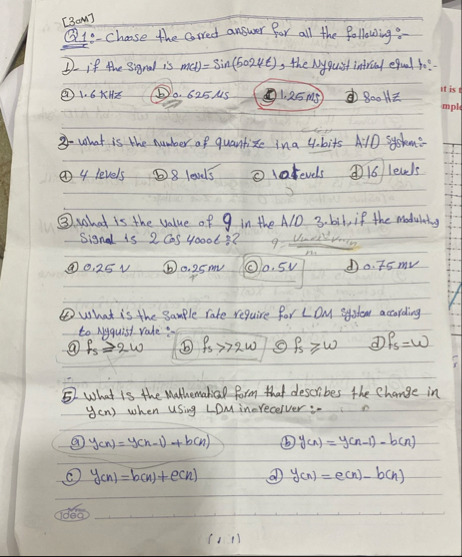 [30M]
Q1:- Choose the Correct answer for all the following:-
1- if the signal is m(t) = Sin(5024t), the Nyquist intrival equal to:-
a 1.6 KHZ b 0.625 MS c 1.25 ms d 800 HZ
2- what is the Number of quantize in a 4-bits A/D System:-
a 4 levels b 8 levels c 10 levels d 16 levels
3 What is the value of q in the A/D 3-bit, if the modulating
Signal is 2 Cos 4000t :?
a 0.25 V b 0.25 mv c 0.5 V d 0.75 mv
4 What is the Sample rate require for LDM System according
to Nyquist rate :-
a fs ≥ 2W b fs >> 2W c fs ≥ W d fs = W
5 What is the Mathematical form that describes the Change in
y(n) when Using LDM in receiver :-
a y(n) = y(n-1) + b(n) b y(n) = y(n-1) - b(n)
c y(n) = b(n) + e(n) d y(n) = e(n) - b(n)
idea
(1.1)